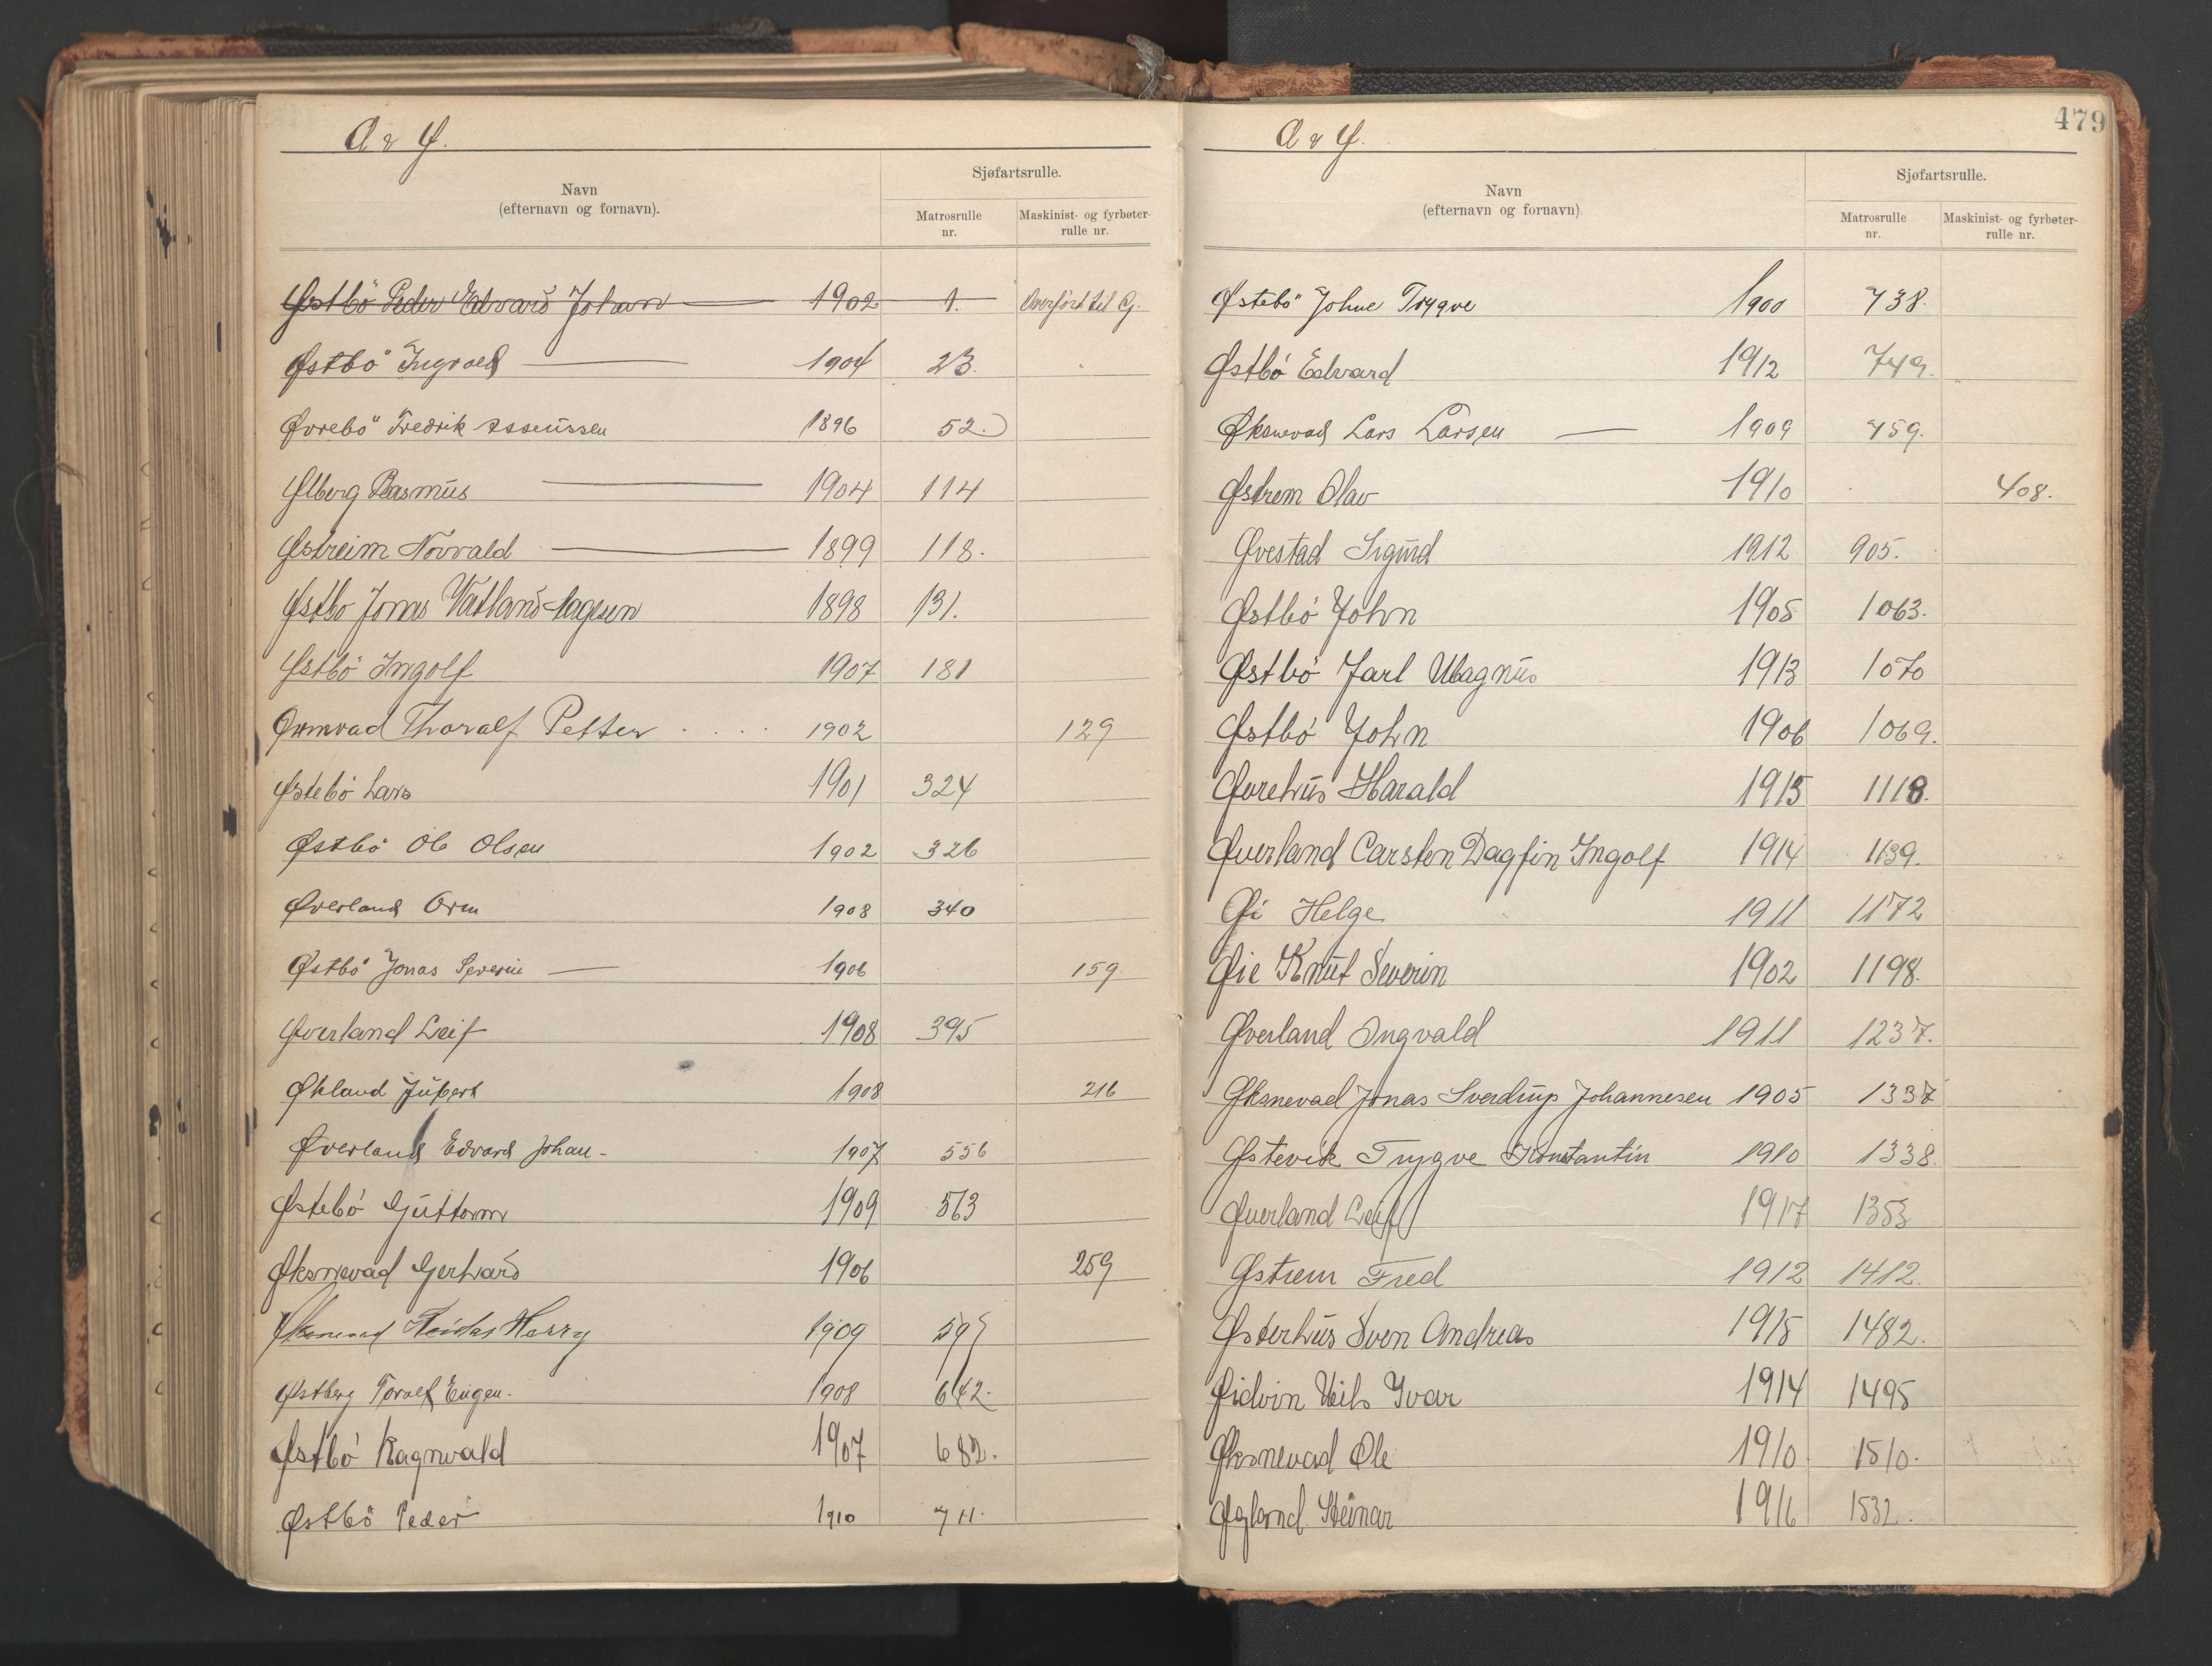 Ø.
Navn
(efternavn og fornavn).
Sjøfartsrulle.
Matrosrulle
nr.
Maskinist- og fyrbøter-
rulle nr.
Østbö Peder Edvard Johan 1902 1. Overført til G.
Østbö Ingvald 1904 23.
Øvrebö Fredrik Asseussen 1896 52.
Ølberg Rasmus 1904 114
Østreim Norvald 1899 118.
Østbø Jonas Vatland 1898 131.
Østbö Ingolf 1907 181
Thoralf Petter 1902 129
Østebö Lars 1901 324
Østbö Ole Olsen 1902 326
Øverland Orm 1908 340
Østbö Jonas Severin 1906 159
Øverland Leif 1908 395
Økland Jubert 1908 216
Øverland Edvard Johan - 1907 556
Østebö Guttorm 1909 563
Øksnevad Gerhard 1906 259
Øksnevad Reidar Harry 1909
Østberg Toralf Eugen. 1908 642.
Østbö Ragnvald 1907 682.
Østbö Peder 1910 711.
479
Ø.
Navn
(efternavn og fornavn)
Sjøfartsrulle.
Matrosrulle
nr.
Maskinist- og fyrbøter-
rulle nr.
Østebö Johne Trygve 1900 738.
Østbö Edvard 1912 749.
Øksnevad Lars Larsen 1909 759.
Østrem Olav 1910 408.
Øvestad Sigurd 1912 905.
Østbö John 1905 1063.
Østbö Jarl Magnus 1913 1070
Østbö John 1906 1069.
Øvrehus Harald 1915 1118.
Øverland Carsten Dagfin Ingolf 1914 1139.
Øi Helge 1911 1172
Øie Knut Severin 1902 1198.
Øverland Ingvald 1911 1237.
Øksnevad Jonas Sverdrup Johannesen 1905 1337
Østevik Trygve Konstantin 1910 1338.
Øverland Leif 1917 1353
Østrem Fred 1912 1412.
Østerhus Sven Andreas 1915 1482.
Øidvin Nils Ivar 1914 1495
Øksnevad Ole 1910 1510.
Øgland Steinar 1916 1532.